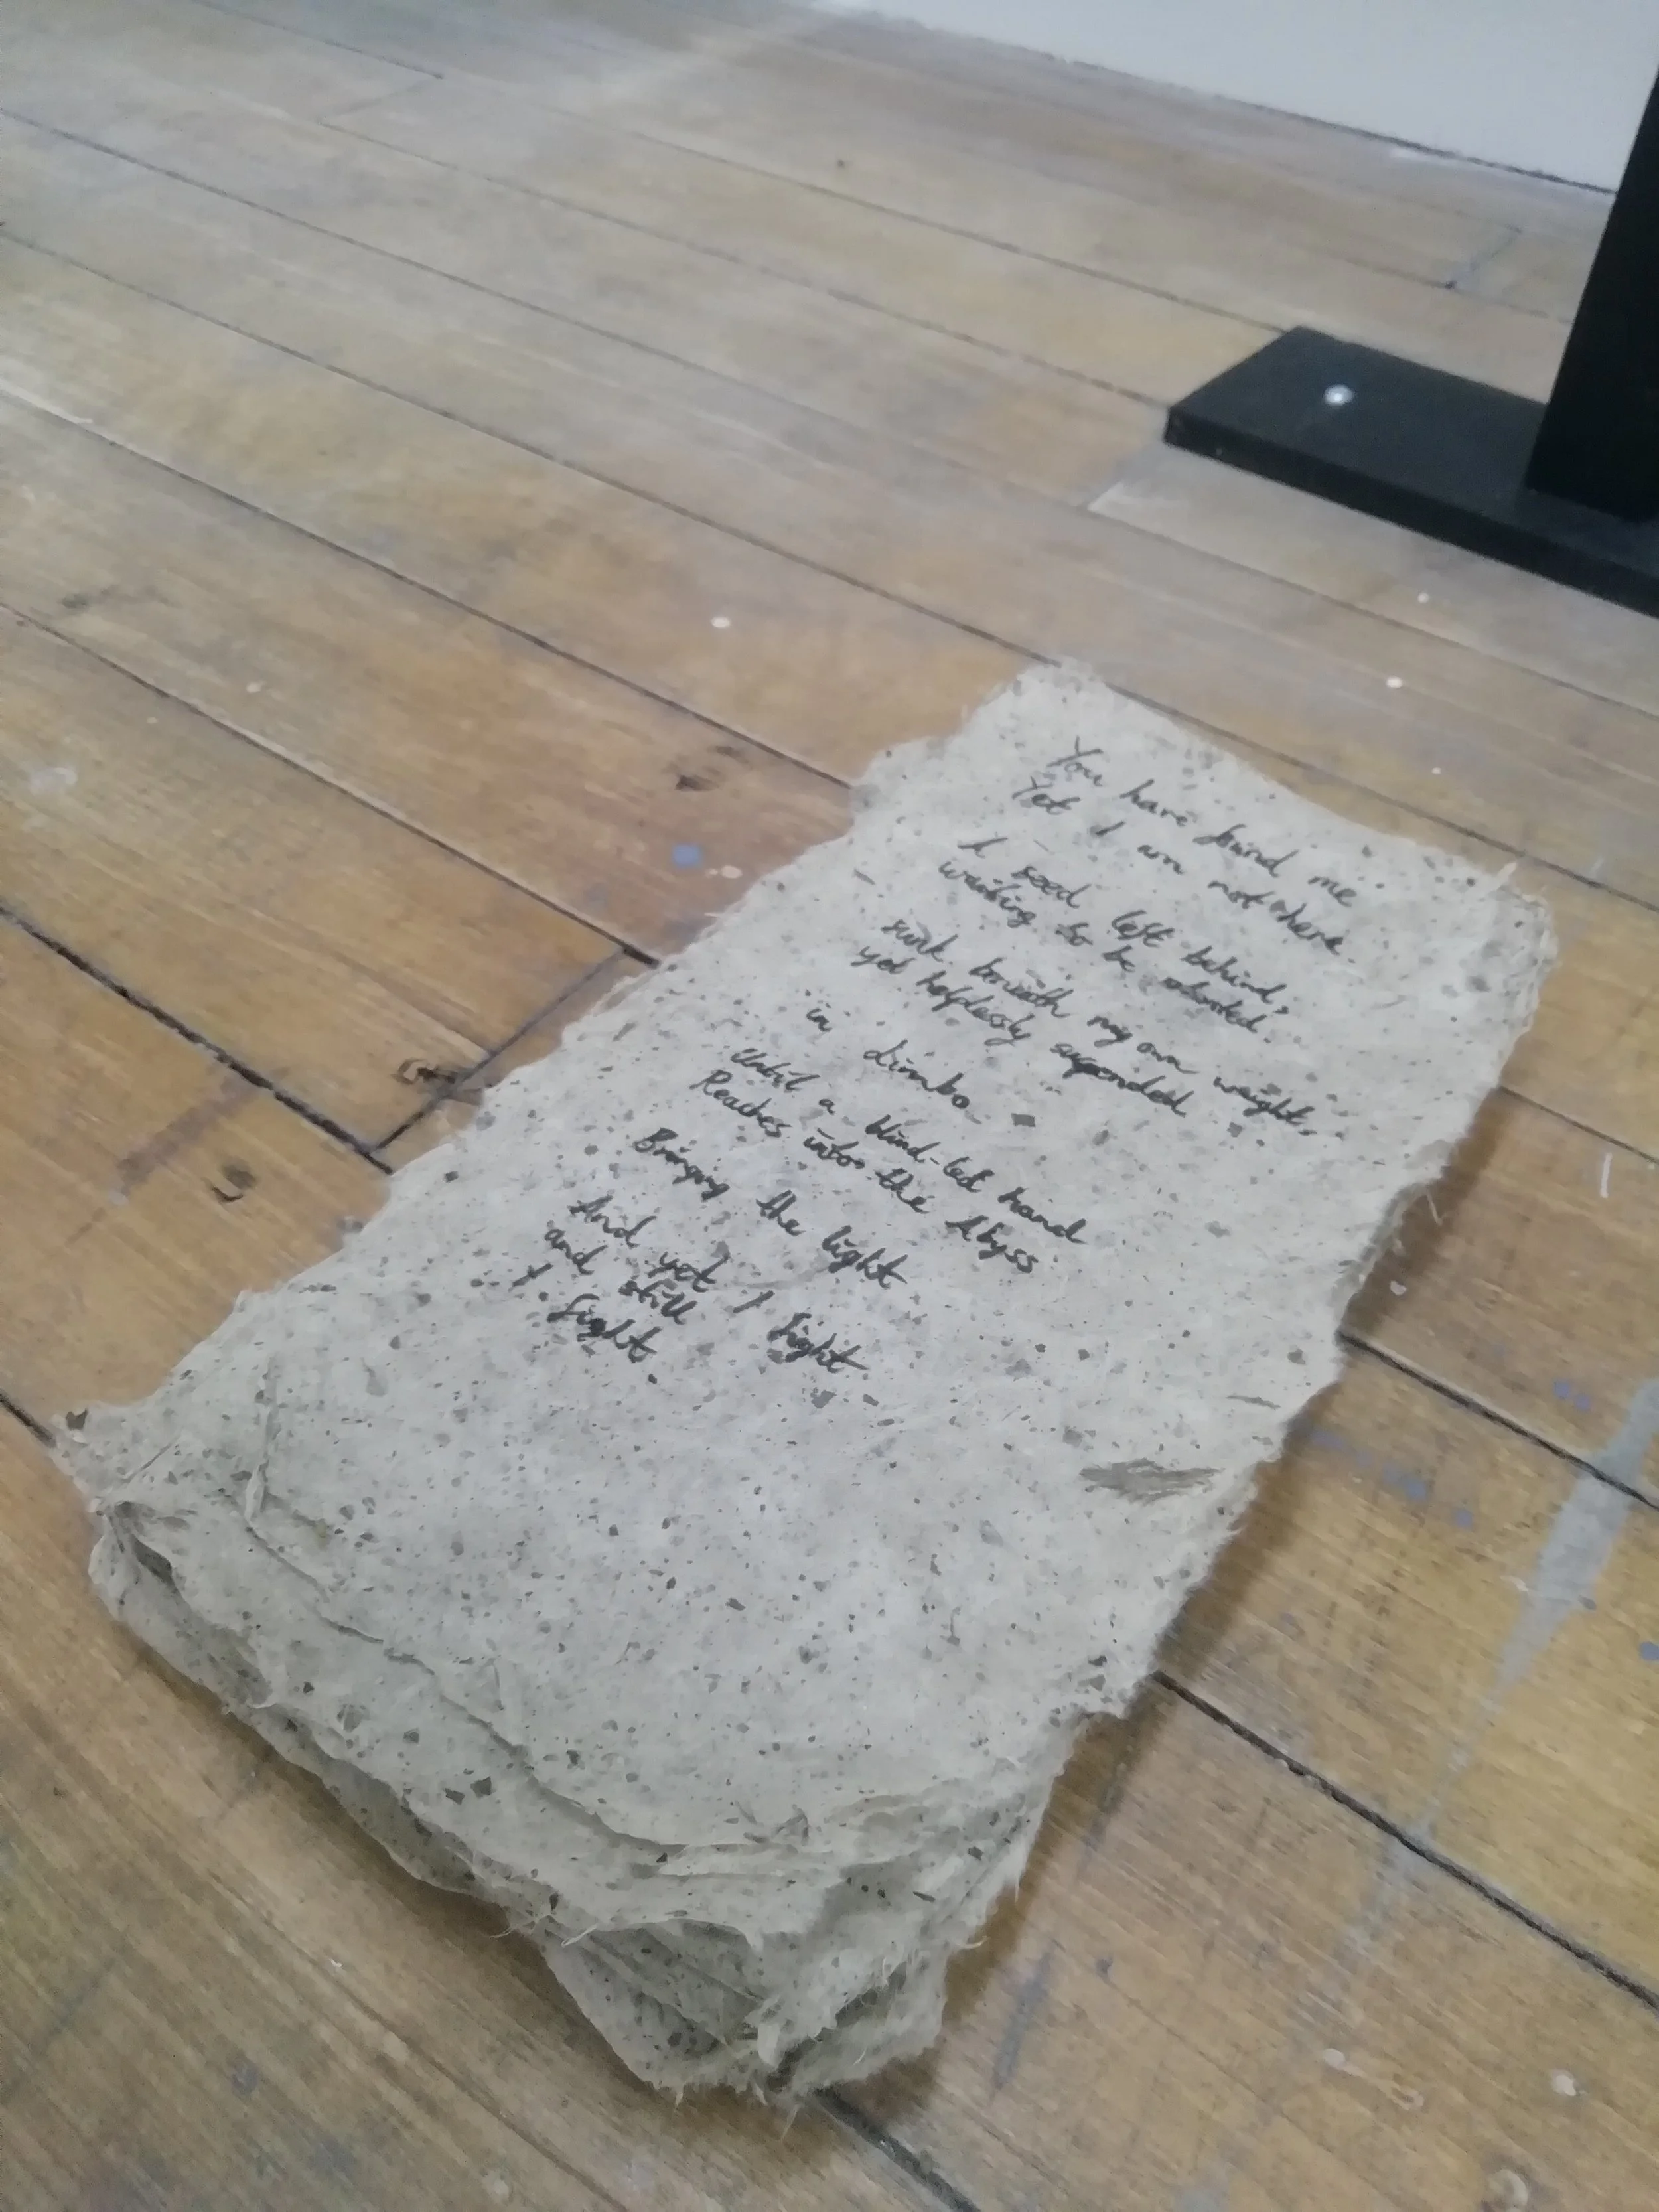 You have found me
Yet I am not here.
A seed left behind,
waiting to be planted.
sunk beneath my own weight,
yet helplessly suspended
in limbo
Until a blind-led hand
Reaches into the Abyss
Bringing the light
And yet I fight
and still
I fight